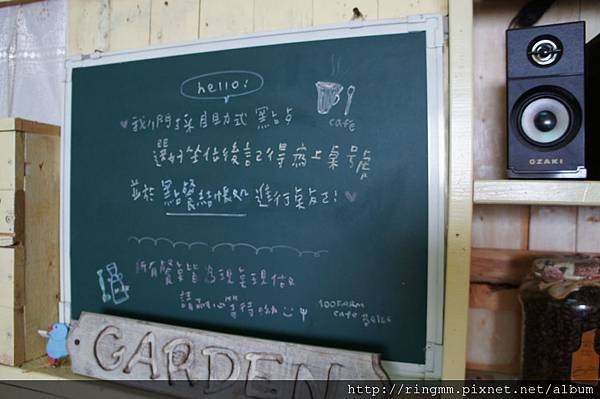 hello:
♥我們採自助式 點餐
cafe
選好坐位後記得寫上桌號
並於點餐結帳処 進行点餐!♥
所有餐點皆為現點現做
請耐心等待呦
100FARM
cafe
GARDEN
OZAKI
http://ringmm.pixnet.net/album